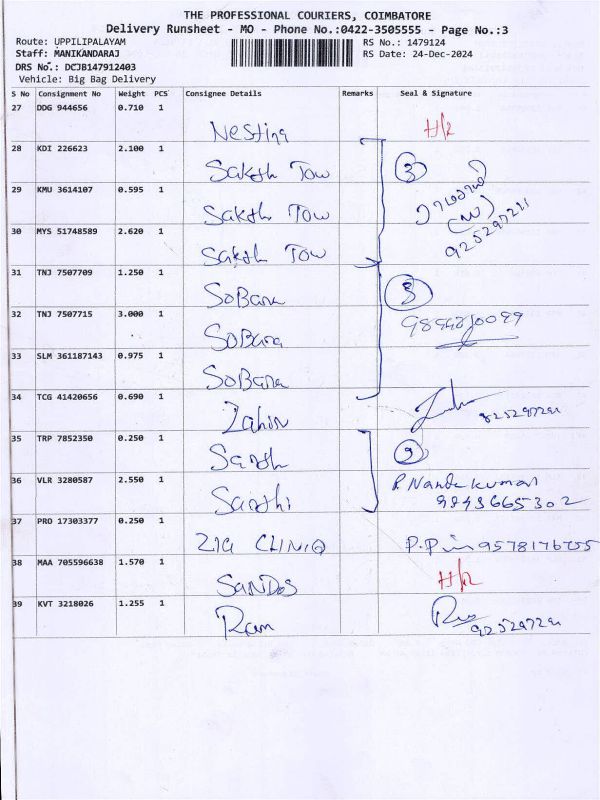 THE PROFESSIONAL COURIERS, COIMBATORE
Delivery Runsheet - MO - Phone No.:0422-3505555 - Page No.:3
Route: UPPILIPALAYAM RS No.: 1479124
Staff: MANIKANDARAJ RS Date: 24-Dec-2024
DRS No.: DCJB147912403
Vehicle: Big Bag Delivery
S No Consignment No Weight PCS Consignee Details Remarks Seal & Signature
27 DDG 944656 0.710 1
H/2
28 KDI 226623 2.100 1
Sakth Tow 3
29 KMU 3614107 0.595 1
Sakth Tow
30 MYS 51748589 2.620 1
Sakth Tow
31 TNJ 7507709 1.250 1
SoBana 3
32 TNJ 7507715 3.000 1
SoBana
33 SLM 361187143 0.975 1
SoBana
34 TCG 41420656 0.690 1
Zahin
35 TRP 7852350 0.250 1
36 VLR 3280587 2.550 1
Sarthi P. Nandakumar
9893665302
37 PRO 17303377 0.250 1
38 MAA 705596638 1.570 1
SANDOS H/2
39 KVT 3218026 1.255 1
Ram